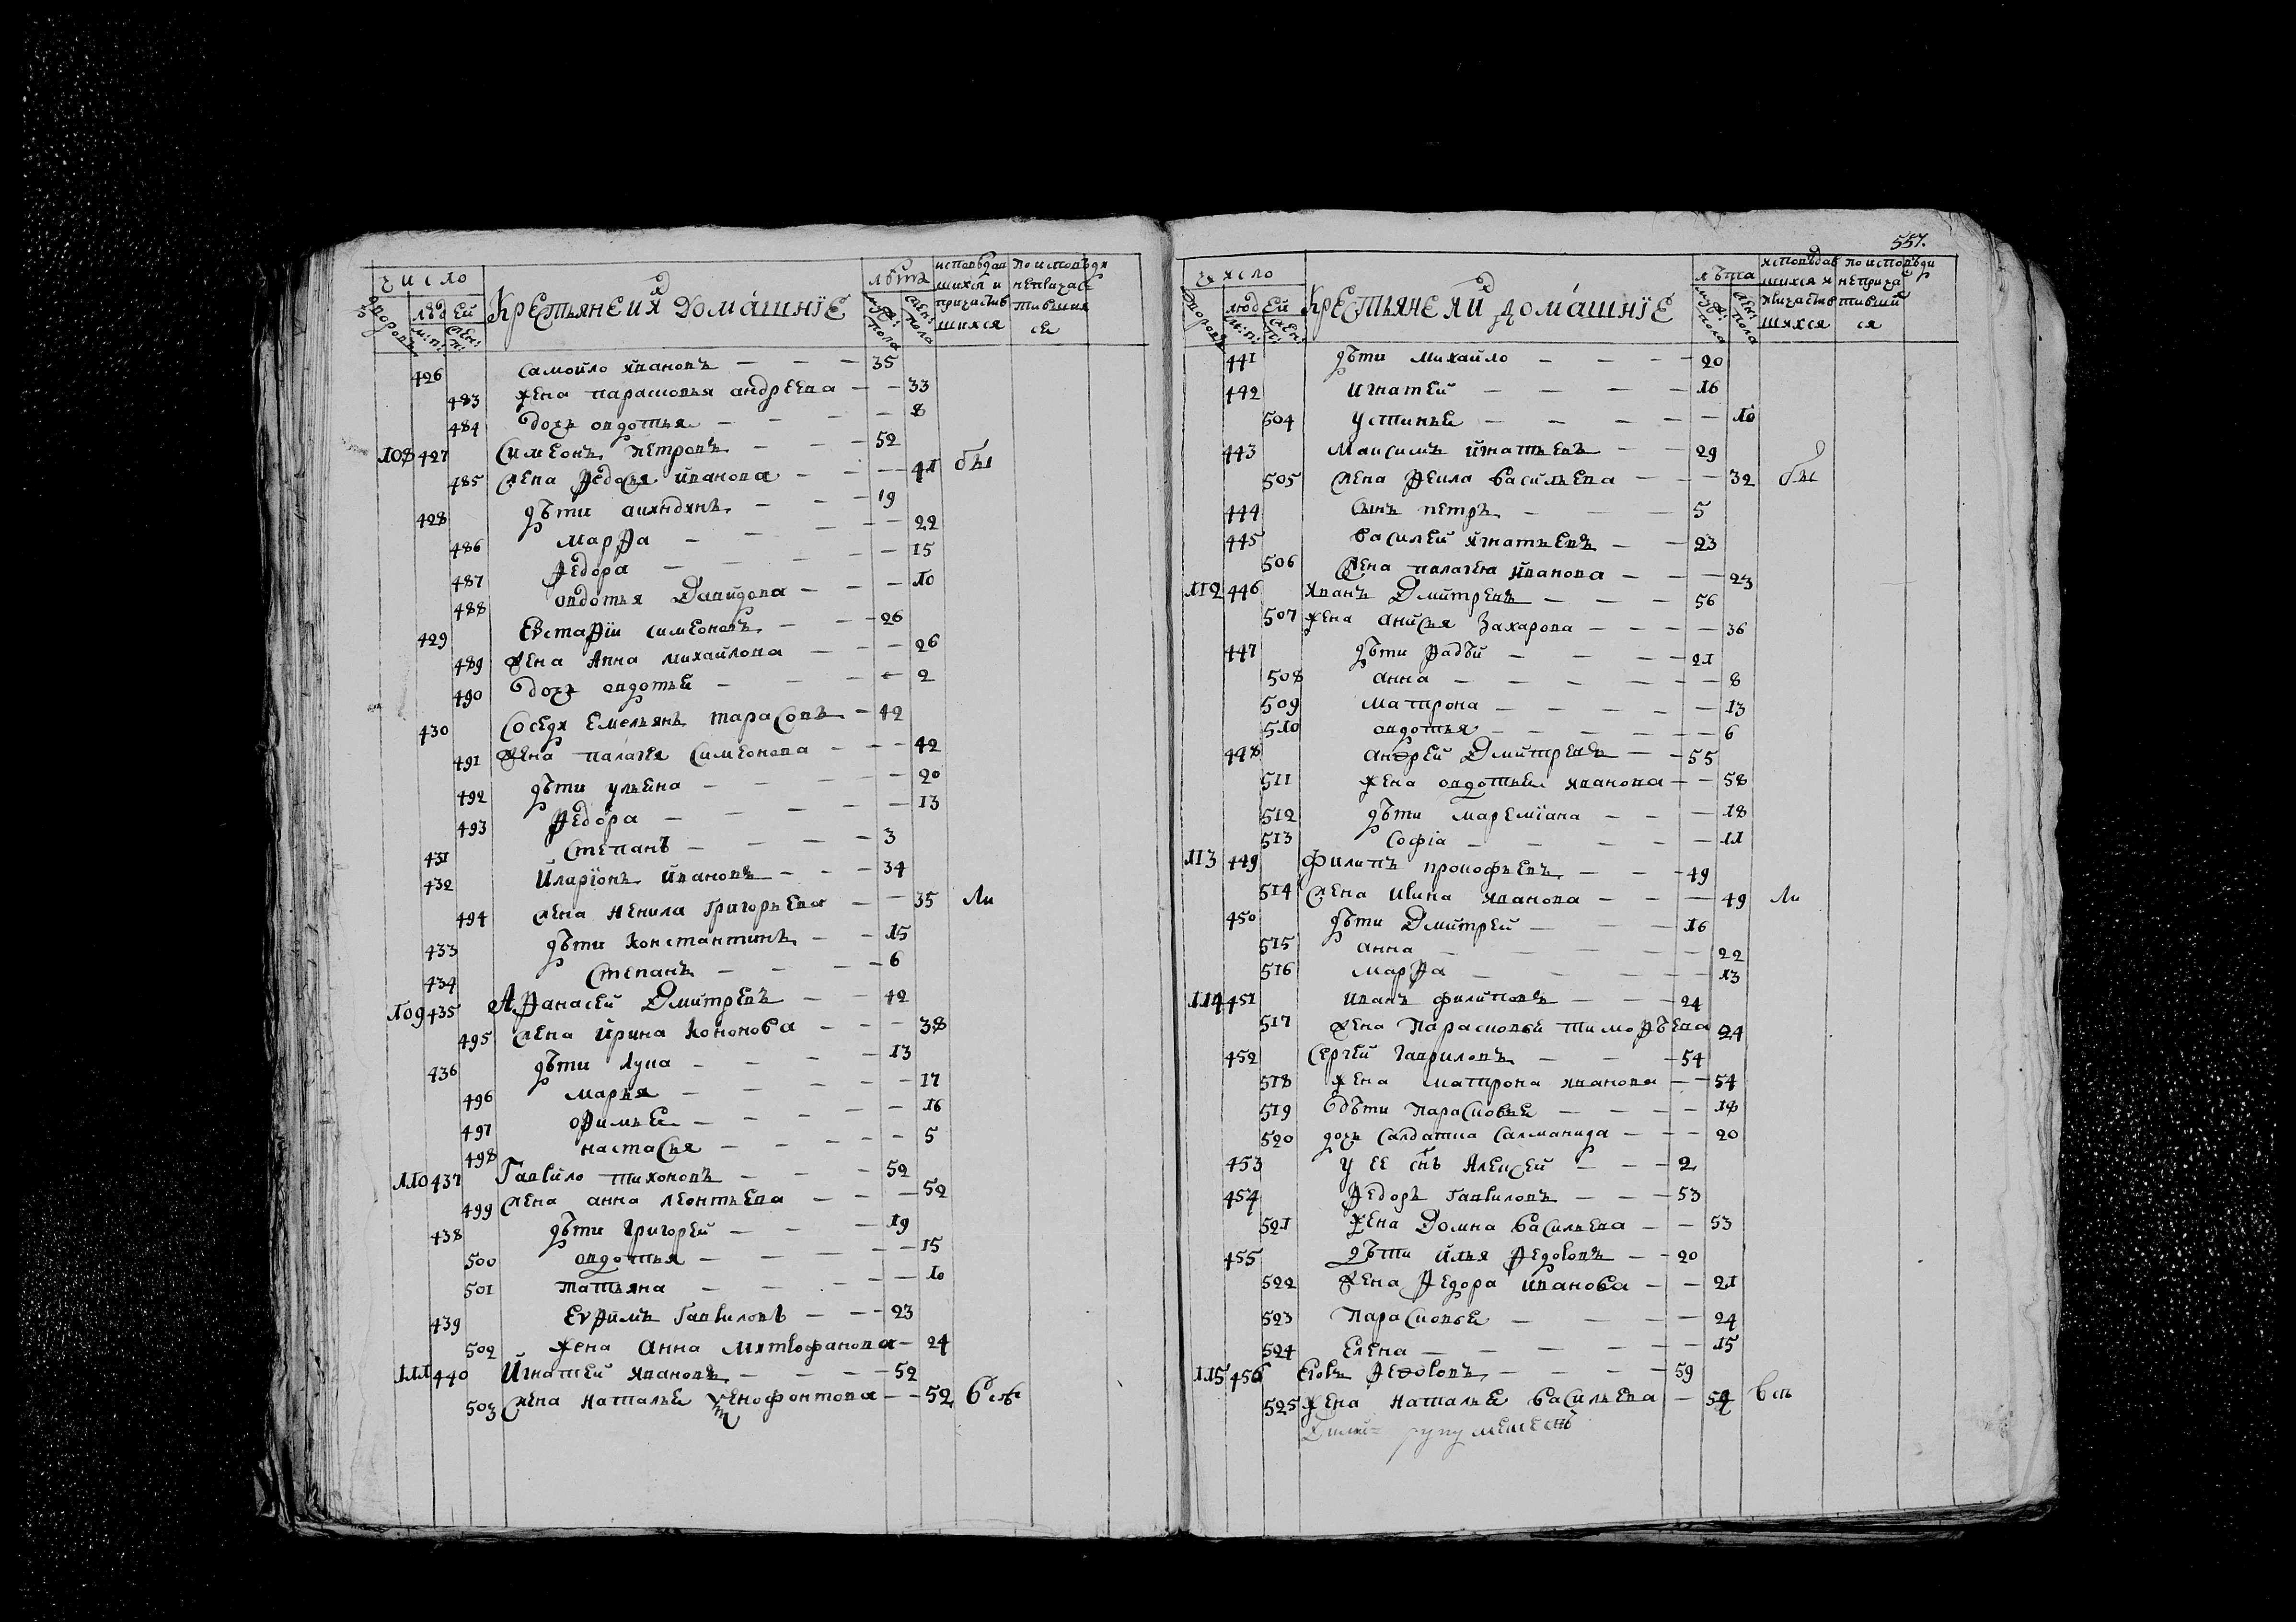 число
дворовъ
людей
м: п:
жен: п:
Крестьяне и их домашнїе
лѣта
муж: пола
жен: пола
исповѣдав
шихся и
причастив
шихся
по исповѣди
непричас
тивших
ся
426 Самойло Ивановъ — 35
483 жена Парасковья Андреева — 33
484 дочь Овдотья — 8
108 427 Симеонъ Петровъ — 52
485 жена Федосья Иванова — 41 бы
428 дѣти 19
486 Марфа — 22
487 Федора — 15
488 Овдотья Давидова — 10
429 Евстафїй Симеоновъ — 26
489 жена Анна Михайлова — 26
490 дочь Овдотья — 2
430 Соседи Емельянъ Тарасовъ — 42
491 жена Палагея Симеонова — 42
492 дѣти Ульяна — 20
493 Федора — 13
431 Степанъ — 3
432 Иларїонъ Ивановъ — 34
494 жена Ненила Григорьева — 35 Ли
433 дѣти Константинъ — 15
434 Степанъ — 6
109 435 Афанасей Дмитревъ — 42
495 жена Ирина Кононова — 38
436 дѣти Лука — 13
496 Марья — 17
497 Офимья — 16
498 Настасья — 5
110 437 Гаврило Тихоновъ — 52
499 жена Анна Леонтьева — 52
438 дѣти Григорей — 19
500 Овдотья — 15
501 Татьяна — 10
439 Ефимъ Гавриловъ — 23
502 жена Анна Митрофанова — 24
111 440 Игнатей Ивановъ — 52
503 жена Наталья Ксенофонтова — 52
557.
число
дворовъ
людей
м: п:
жен: п:
Крестьяне и их домашнїе
лѣта
муж: пола
жен: пола
исповѣдав
шихся и
причастив
шихся
по исповѣди
неприча
стивши
ся
441 дѣти Михайло — 20
442 Игнатей — 16
504 Устинья — 10
443 Максимъ Игнатьевъ — 29
505 жена Фекла Васильева — 32 бы
444 сынъ Петръ — 5
445 Василей Игнатьевъ — 23
506 жена Палагея Иванова — 23
112 446 Иванъ Дмитревъ — 56
507 жена Анисья Захарова — 36
447 дѣти Фадѣй — 21
508 Анна — 8
509 Матрона — 13
510 Овдотья — 6
448 Андрей Дмитревъ — 55
511 жена Овдотья Иванова — 58
512 дѣти Маремїана — 18
513 Софїа — 11
113 449 Филипъ Прокофьевъ — 49
514 жена Ирина Иванова — 49 Ли
450 дѣти Дмитрей — 16
515 Анна — 22
516 Марфа — 13
114 451 Иванъ Филиповъ — 24
517 жена Парасковья Тимофѣева 24
452 Сергей Гавриловъ — 54
518 жена Матрона Иванова — 54
519 дѣти Парасковья — 18
520 дочь салдатка Саломанида — 20
453 у ее снъ Алексей — 2
454 Федоръ Гавриловъ — 53
521 жена Домна Васильева — 53
455 дѣти Илья Федоровъ — 20
522 жена Федора Иванова — 21
523 Парасковья — 24
524 Елена — 15
115 456 Егоръ Федоровъ — 59
525 жена Наталья Васильева — 54